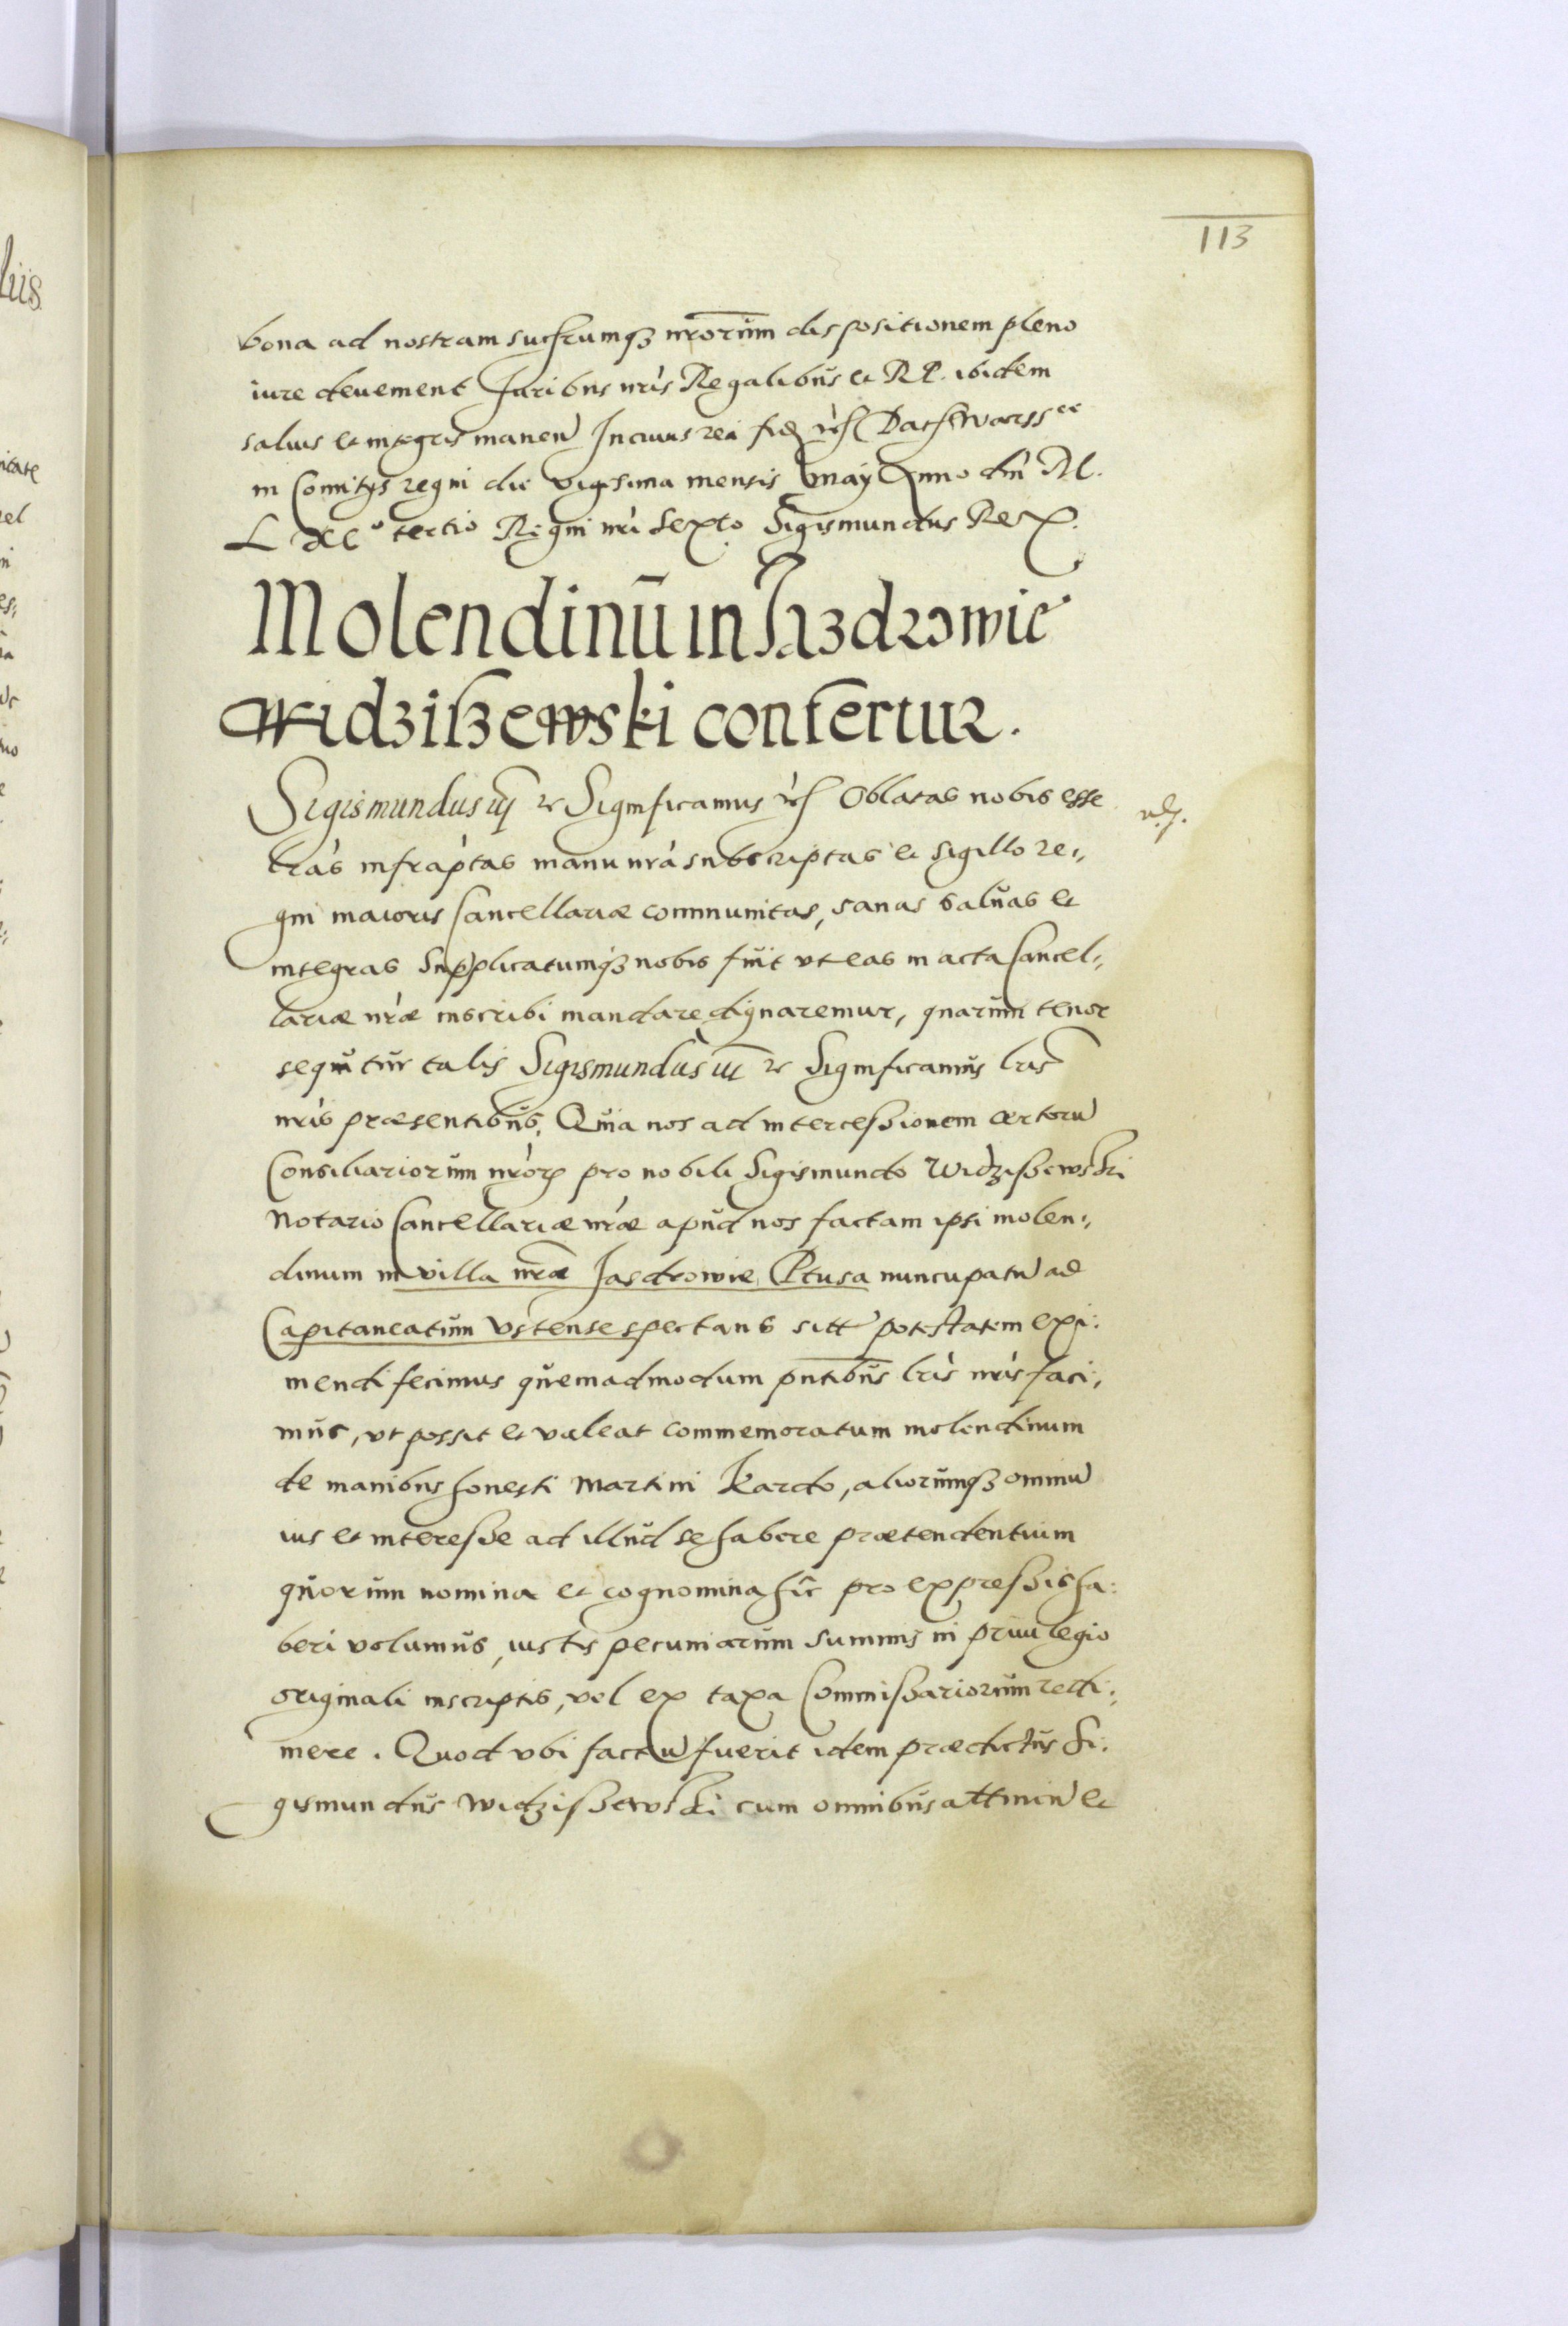 113
bona ad nostram sucỹrumqꝫ nr̄orum dispositionem pleno
iure deuement Juribus nrı̀s Regalibus et RP. ibidem
saluis et integris manen̄ In cuius rei fidꝫ
in Comitijs regni die vigesima mensis maij Anno dnı̀ M.
D XCº tertio Regni nrı̀ sexto Sigismundus Rex.
Molendinū in Jazdrowie
Widzißewski confertur.
Sigismundus iij Significamus Oblatas nobis esse
lrà̀s infraptas manu nrà subscriptas et sigillo re=
gni maioris Cancellariæ communitas, sanas saluas et
integras Supplicatumqꝫ nobis fuit vt eas in acta Cancel=
lariæ nrǽ inscribi mandare dignaremur, quarum tenor
sequitur talis Sigismundus iii Significamus lris
nrı̀s præsentibus. Quia nos ad intercessionem certorū
Consiliariorum nrórꝫ pro nobili Sigismundo Widzißewski
Notario Cancellariæ nrǽ apud nos factam ipsi molen=
dinum in villa nrǽ Jasdrowie Ptusa nuncupatū ad
Capitaneatum Vstense spectans potestatem exi=
mendi fecimus quemadmodum pn̄tibus lrı̀s nrı̀s faci=
mus, vt possit et valeat commemoratum molendinum
de manibus honesti Martini Kardo, aliorumqꝫ omniū
ius et interesse ad illud se habere prætendentium
quorum nomina et cognomina hic pro expressis ha=
beri volumus, iustis pecuniarum summis in priuilegio
originali inscriptis, vel ex taxa Commissariorum redi=
mere. Quod vbi factū fuerit idem prædictus Si=
gismundus Widzißewski cum omnibus attinen̄ et